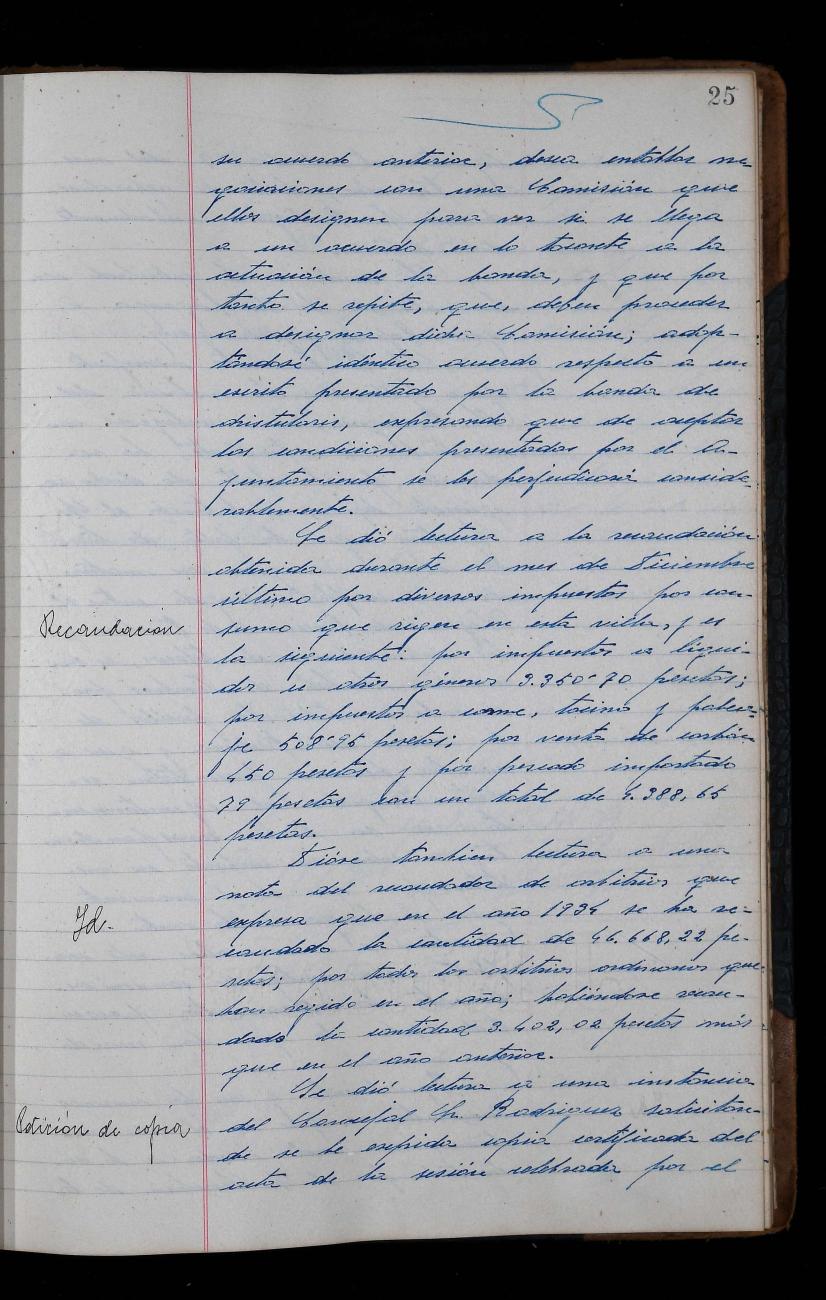 25
su acuerdo anterior, desea entablar ne-
gociaciones con una Comisión que
ellos designen para ver si se llega
a un acuerdo en lo tocante a la
actuación de la banda, y que por
tanto se repite, que, deben proceder
a designar dicha Comisión; adop-
tándose idéntico acuerdo respecto a un
escrito presentado por la banda de
chistularis, expresando que de aceptar
las condiciones presentadas por el A-
yuntamiento se les perjudicará conside-
rablemente.
Se dió lectura a la recaudación
obtenida durante el mes de Diciembre
último por diversos impuestos por con-
Recaudación
sumo que rigen en esta villa, y es
la siguiente: por impuestos a líqui-
dos u otros géneros 3.350'70 pesetas;
por impuestos a carne, tocino y
508'95 pesetas; por venta de carbón
450 pesetas y por pescado importado
79 pesetas con un total de 4.388,65
pesetas.
Dióse tambien lectura a una
nota del recaudador de arbitrios que
Id.
expresa que en el año 1934 se ha re-
caudado la cantidad de 46.668,22 pe-
setas; por todos los arbitrios ordinarios que
han regido en el año; habiéndose recau-
dado la cantidad 3.402,02 pesetas más
que en el año anterior.
Se dió lectura a una instancia
Petición de copia
del Concejal Sr. Rodriguez solicitan-
do se le expida copia certificada del
acta de la sesión celebrada por el